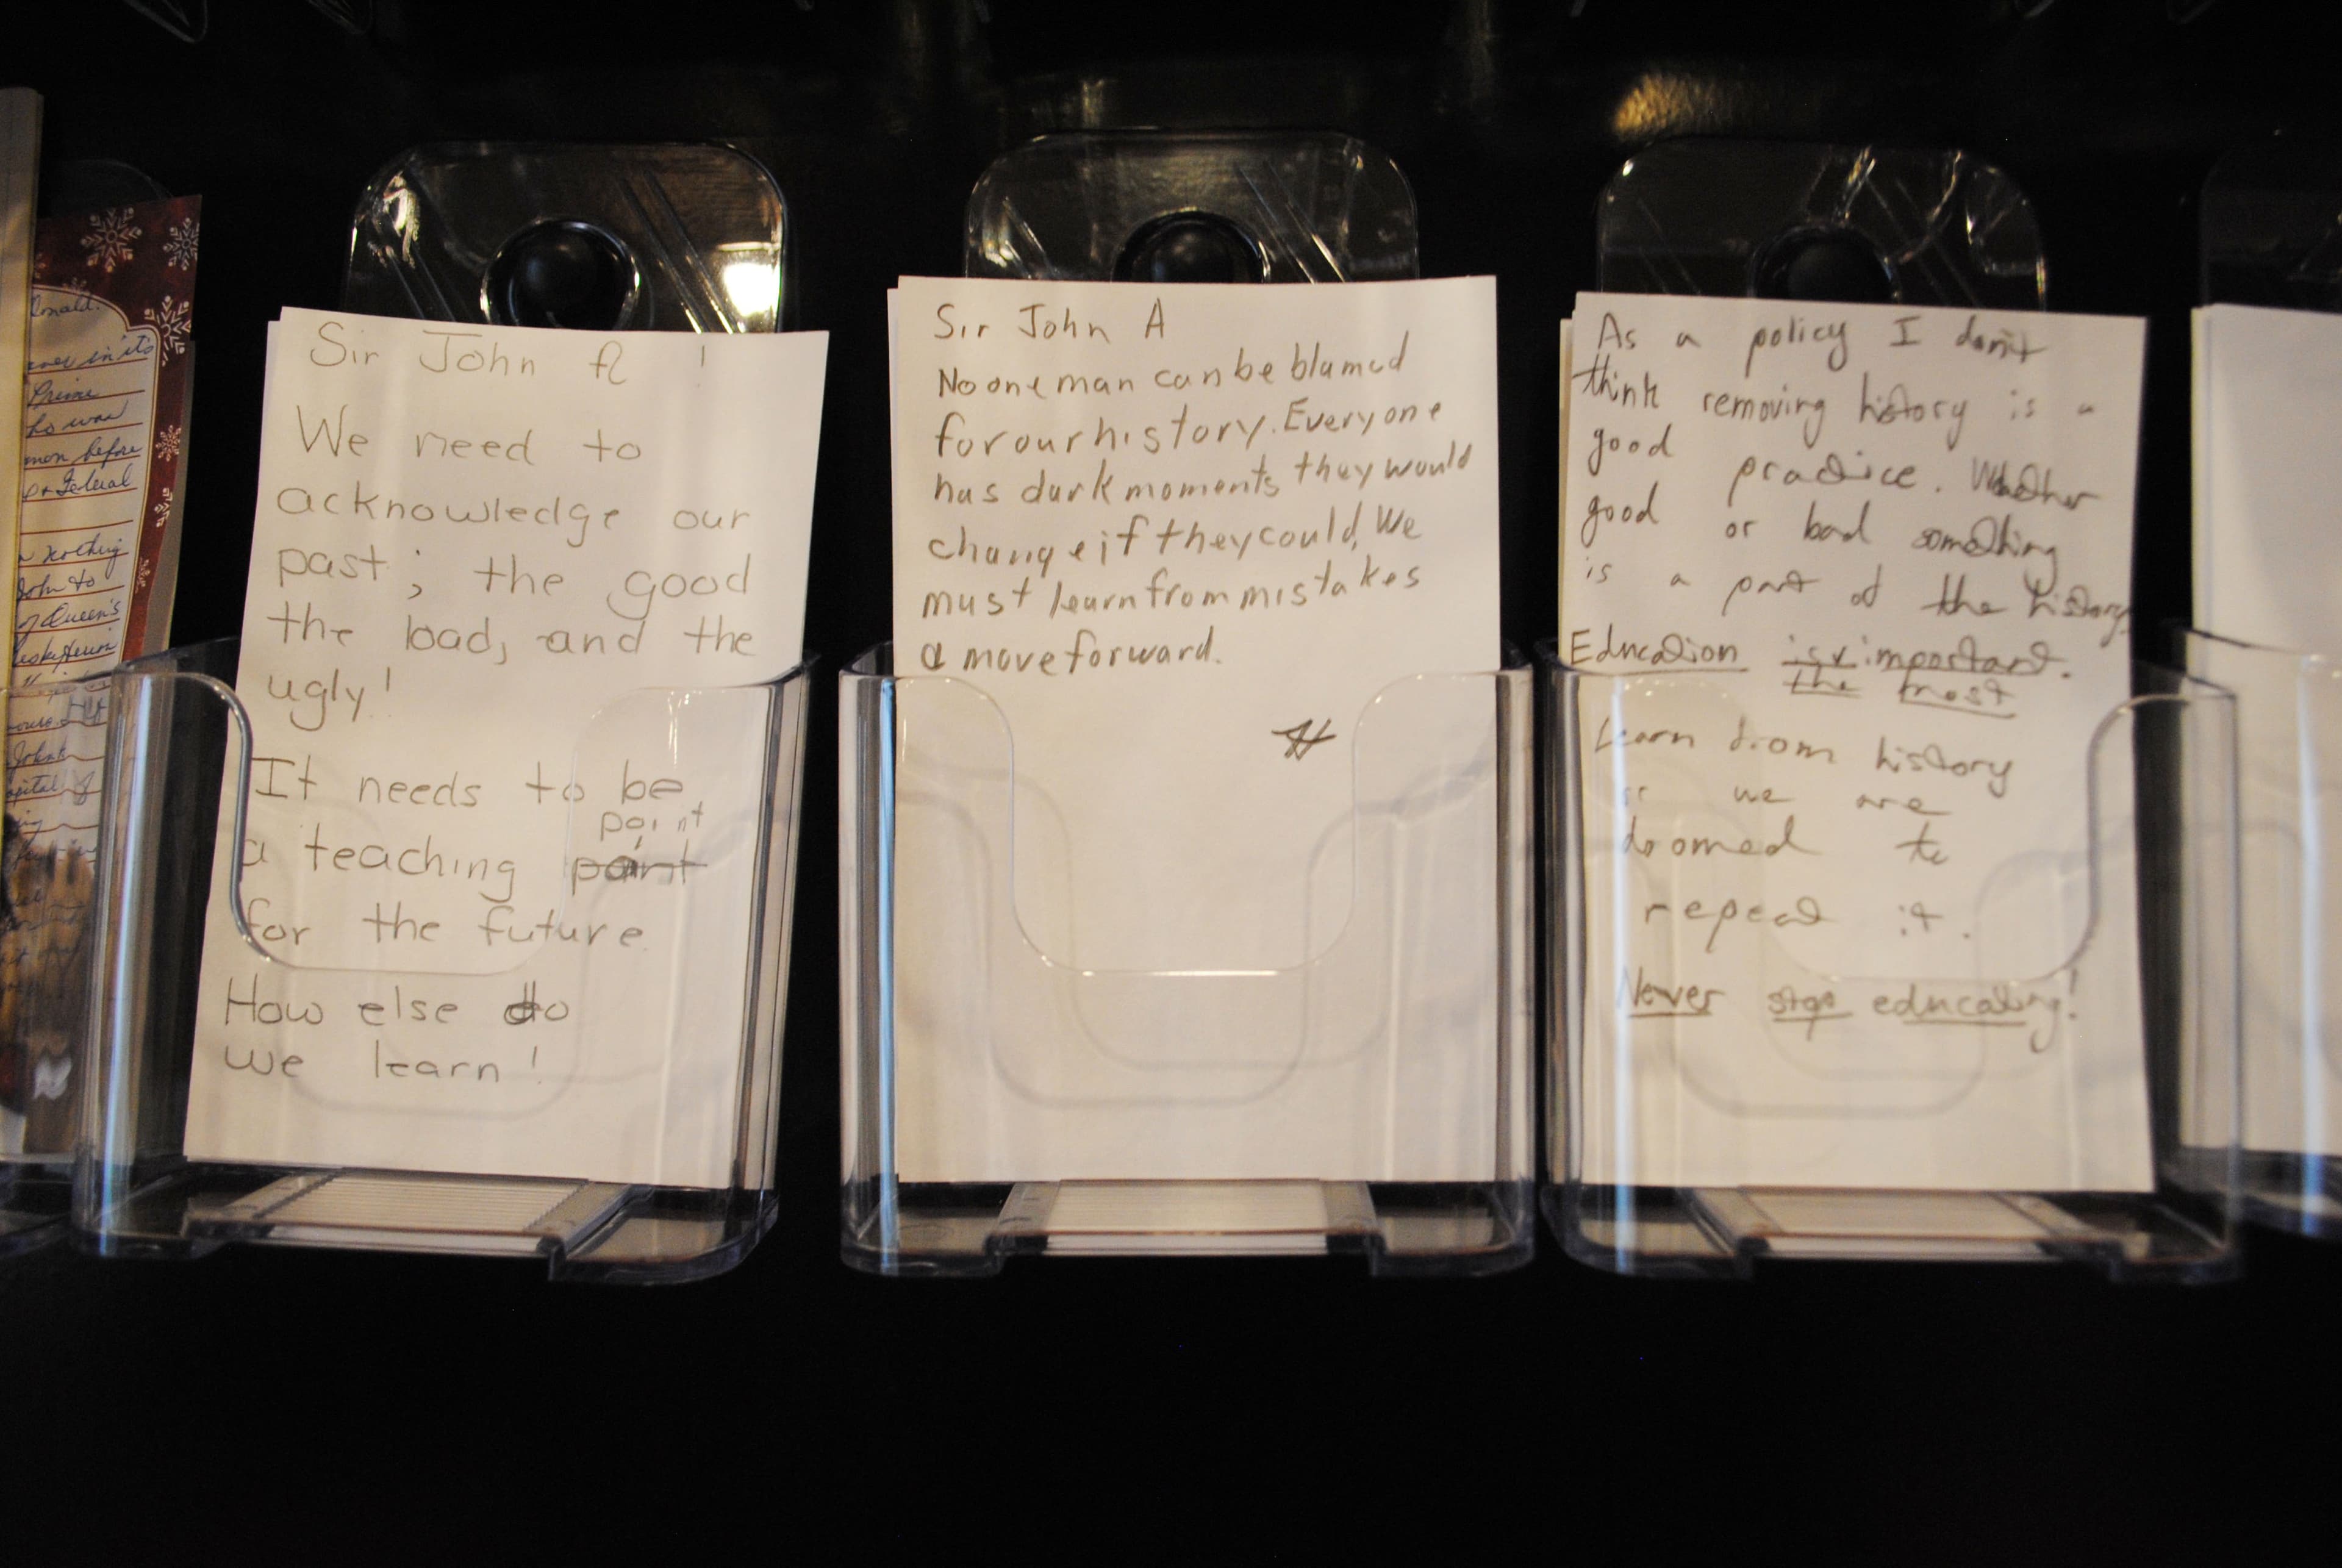 onald.
ever in it's
Prime
ho was
mon before
or Federal
nothing
John to
of Queen's
John
Sir John A !
We need to
acknowledge our
past; the good
the bad, and the
ugly!
It needs to be
point
a teaching paint
for the future
How else do
we learn!
Sir John A
No one man can be blamed
for our history. Everyone
has dark moments they would
change if they could, We
must learn from mistakes
a move forward.
As a policy I don't
think removing history is a
good practice. Whether
good or bad something
is a part of the history.
Education is v important.
the most
Learn from history
or we are
doomed to
repeat it.
Never stop educating!